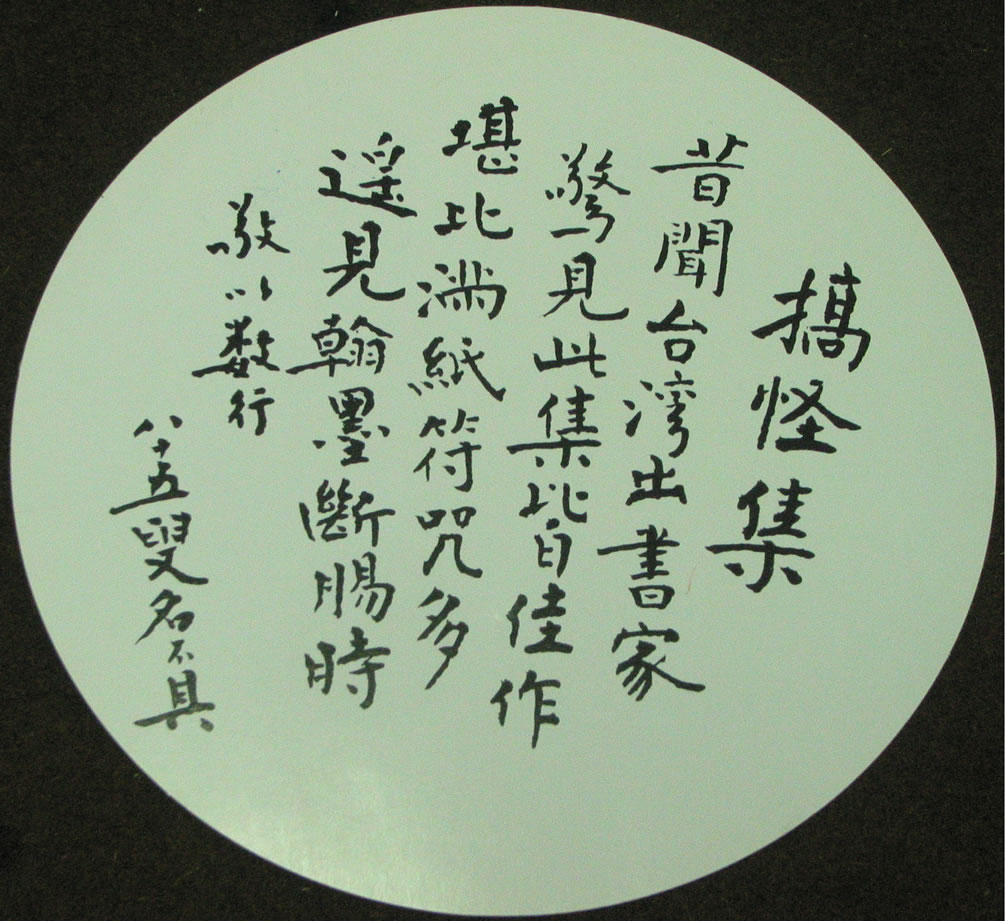 搞怪集
昔聞台灣出書家
驚見此集皆佳作
堪比滿紙符咒多
遥見翰墨斷腸時
敬以数行
八十五叟名不具